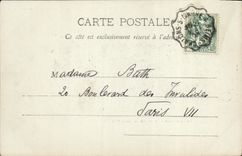 CARTE POSTALE
Ce côté est exclusivement réservé à l'adresse
Madame Bath
20 Boulevard des Invalides
Paris VII